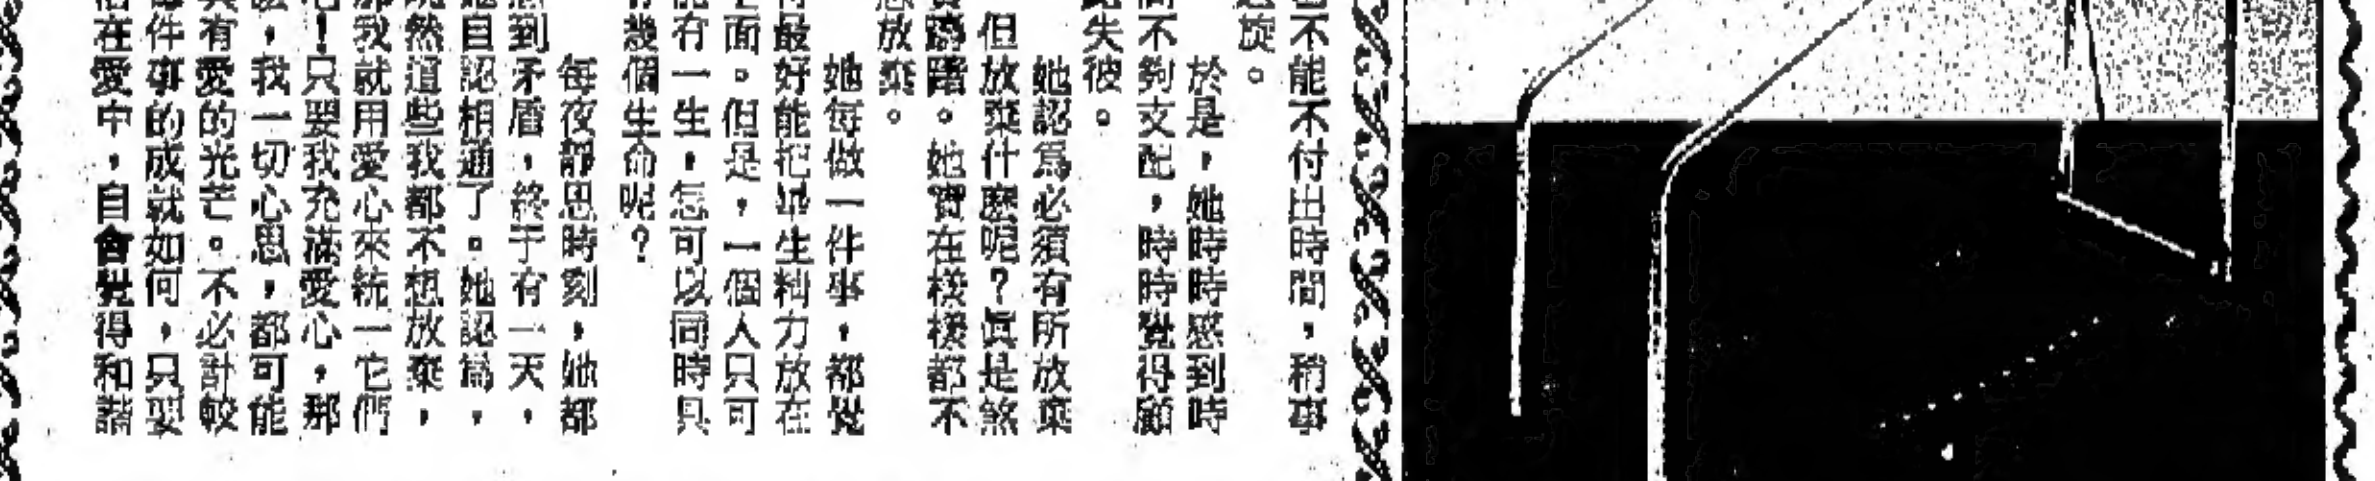 不能不付出時間，稍事
旋。
於是，她時時感到時
間不夠支配，時時覺得顧
失彼。
她認爲必須有所放棄
但放棄什麽呢？眞是煞
費躊躇。她實在樣樣都不
放棄。
她每做一件事，都覺
得最好能把畢生精力放在
面。但是，一個人只可
能有一生，怎可以同時具
有幾個生命呢？
每夜靜思時刻，她都
感到矛盾，終于有一天，
她自認相通了。她認爲，
既然這些我都不想放棄，
那我就用愛心來統一它們
！只要我充滿愛心，那
，我一切心思，都可能
具有愛的光芒。不必計較
件事的成就如何，只要
在愛中，自會覺得和諧